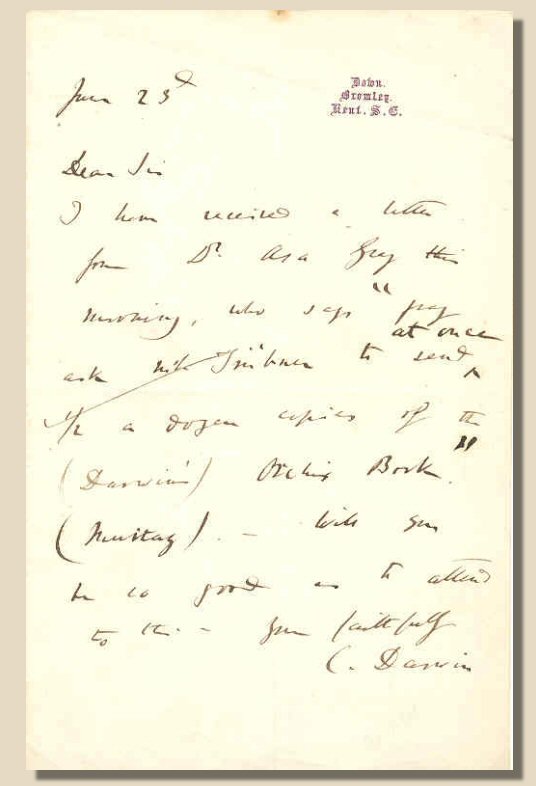 Down.
Bromley.
Kent. S.E.
June 23d
Dear Sir
I have received a letter
from Dr. Asa Gray this
morning, who says "pray
at once
ask Trübner to send
1/2 a dozen copies of the
(Darwin's) Orchis Book."
(Murray). — Will you
be so good as to attend
to this. — Yours faithfully
C. Darwin